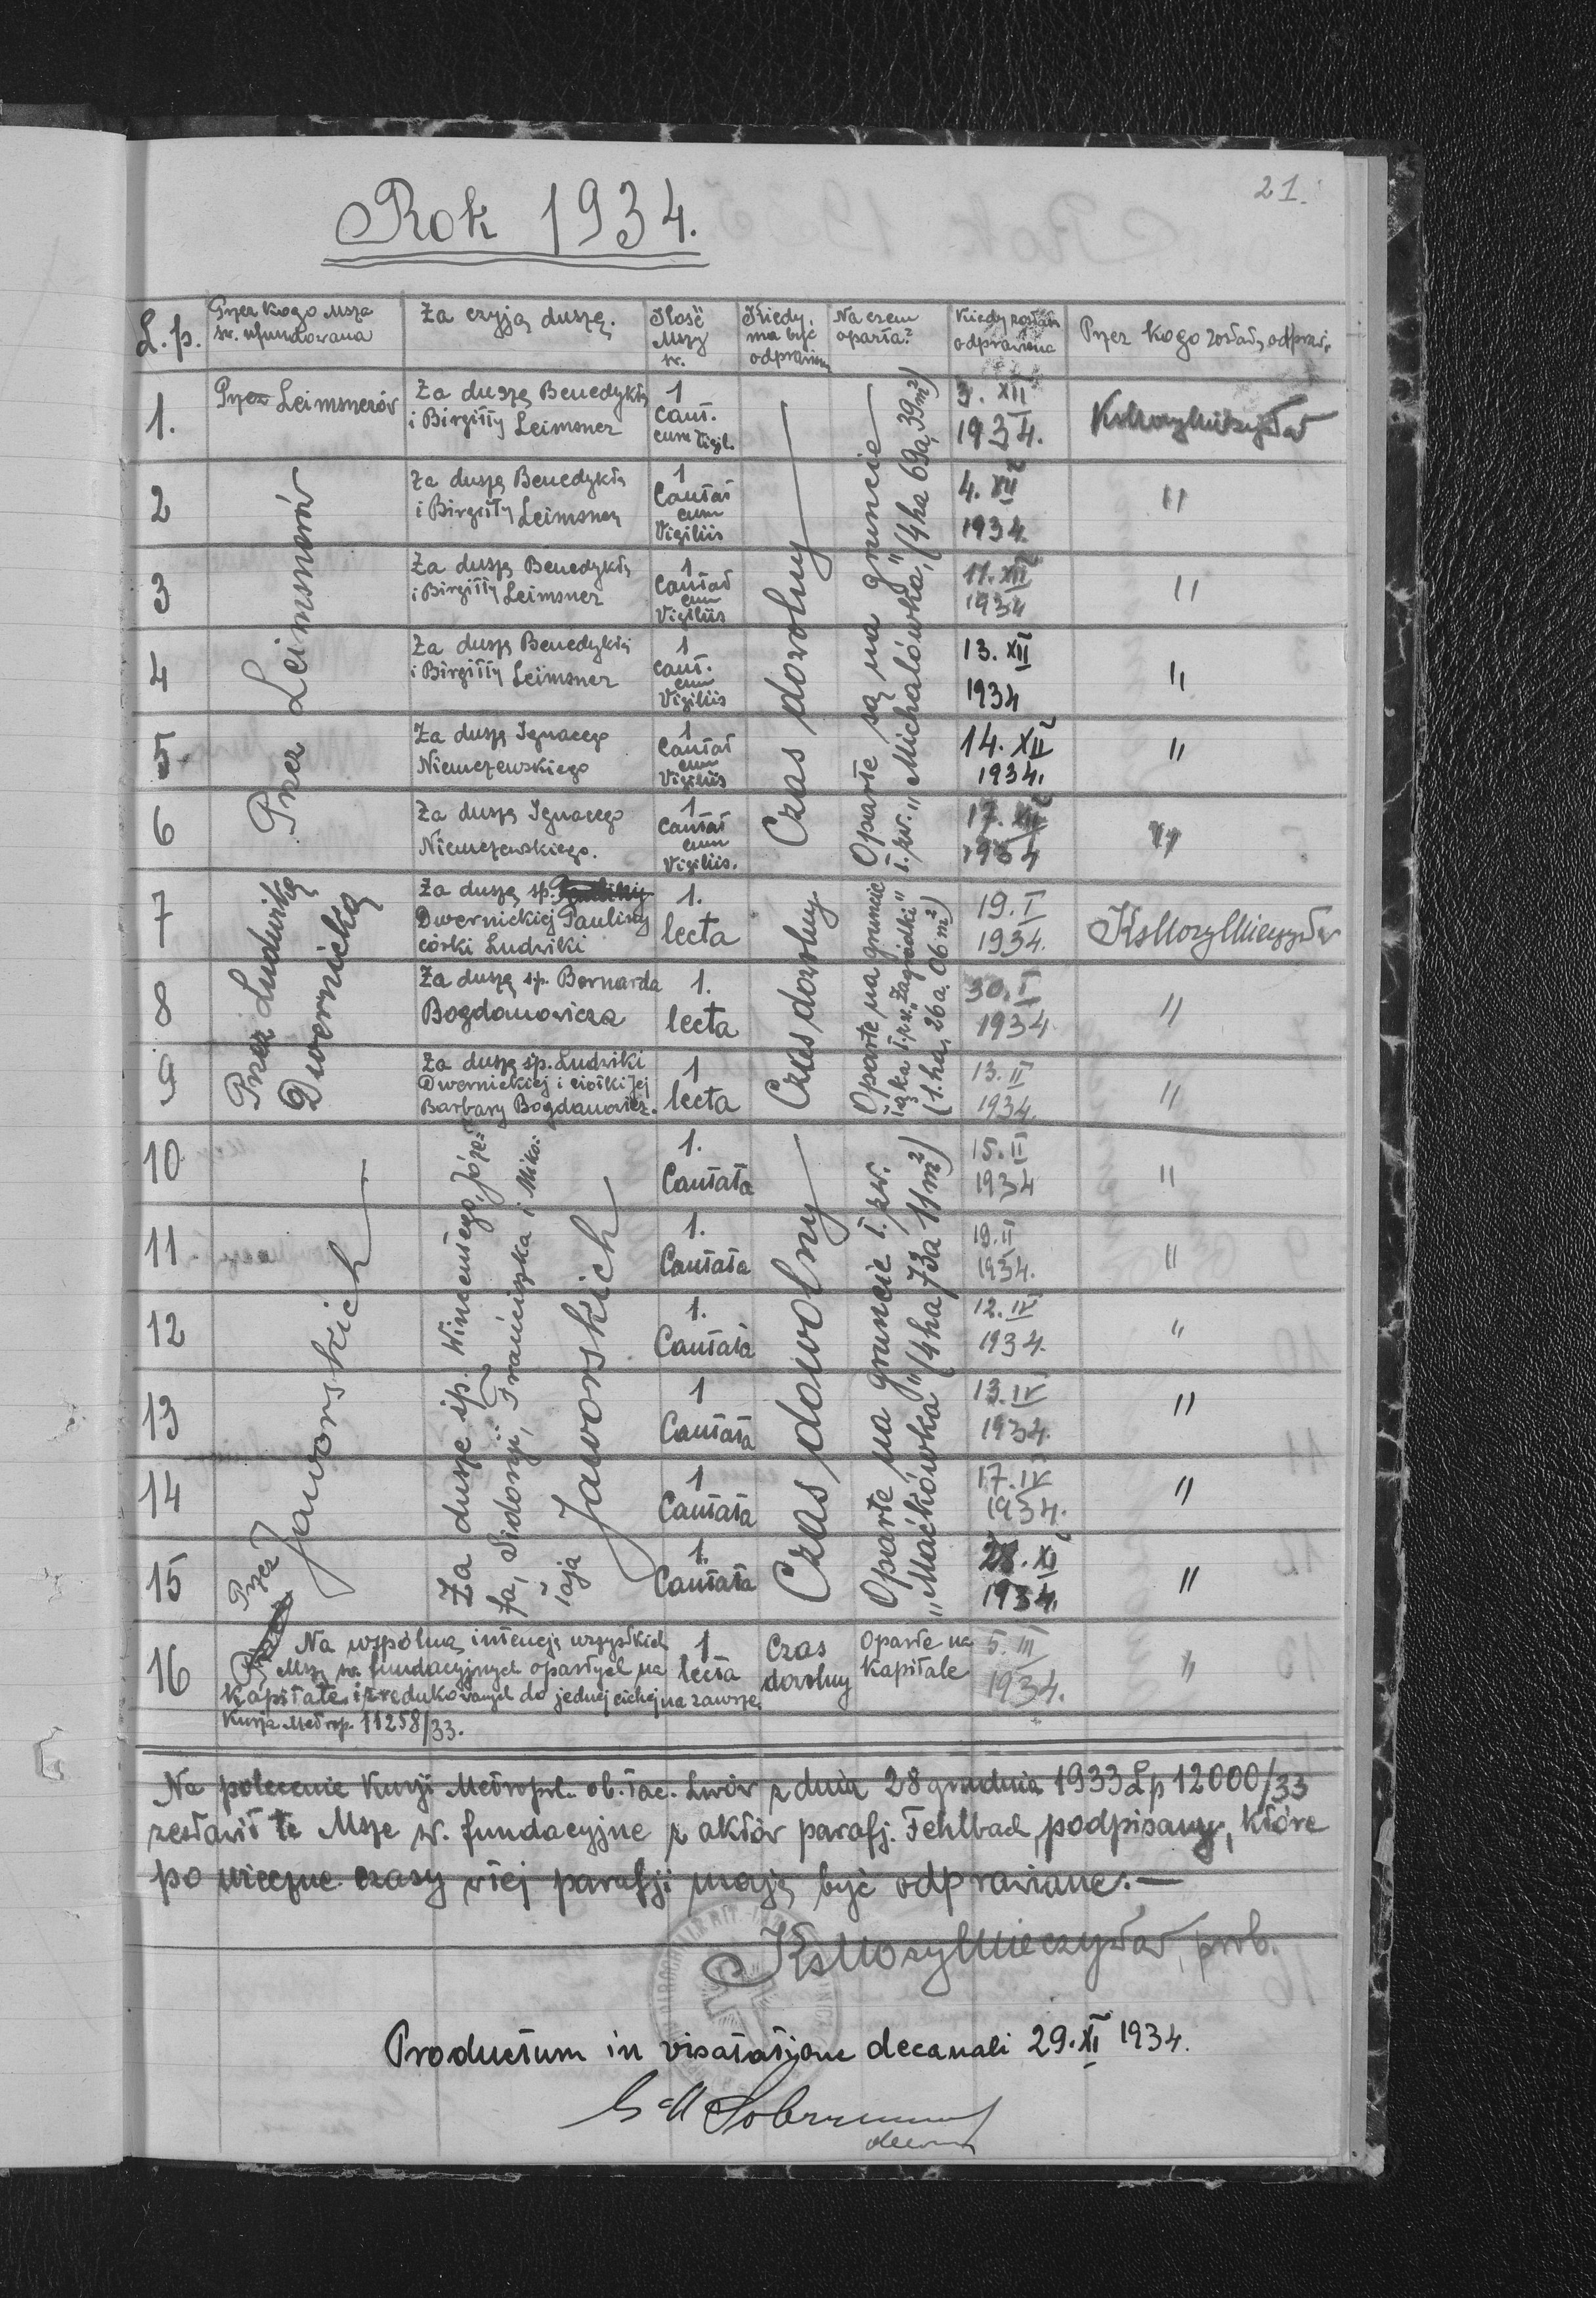 21.
Rok 1934.
L. p.
Przez kogo Msza
św. ufundowana
Za czyją duszę.
Ilość
Mszy
św.
Kiedy
ma być
odprawion
Na czem
oparta?
Kiedy została
odprawiona
Przez kogo została odpraw.
1.
Przez Leimsnerów
Za duszę Benedykta
i Birgitty Leimsner
1
cant.
cum Vigil.
3. XII
1934.
Ks Mozyl Mieczysław
2
Za duszę Benedykta
i Birgitty Leimsner
1
Cantat
cum
Vigiliis
4. XII
1934
"
3
Za duszę Benedykta
i Birgitty Leimsner
1
Cantat
cum
Vigiliis
11. XII
1934
"
4
Za duszę Benedykta
i Birgitty Leimsner
1
cant.
cum
Vigiliis
13. XII
1934
"
5
Za duszę Ignacego
Niemczewskiego
1
Cantat
cum
Vigiliis
14. XII
1934.
"
6
Za duszę Ignacego
Niemczewskiego.
1
Cantat
cum
Vigiliis.
17. XII
1934
"
Przez Leimsnerów
Czas dowolny
Oparte są na gruncie
t. zw. „Michalówka" (4 ha 69a, 39m²)
7
Za duszę śp. Pauliny
Dwernickiej Pauliny
córki Ludwiki
1.
lecta
19. I
1934.
Ks Mozyl Mieczysław
8
Za duszę śp. Bernarda
Bogdanowicza
1.
lecta
30. I
1934
"
9
Za duszę śp. Ludwiki
Dwernickiej i ciotki Jej
Barbary Bogdanowicz.
1
lecta
13. II
1934.
"
Przez Ludwikę
Dwernicką
Czas dowolny
Oparte na gruncie
łąka t. zw. „Zagródki"
(1. ha, 26 a. 06 m²)
10
1.
Cantata
15. II
1934
"
11
1.
Cantata
19. II
1934.
"
12
1.
Cantata
12. IV
1934.
"
13
1
Cantata
13. IV
1934.
"
14
1
Cantata
17. IV
1934.
"
15
1.
Cantata
28. XI
1934.
"
Przez Jaworskich
Za duszę śp. Wincentego, Józe=
fa, Sidonji, Franciszka i Miko=
łaja Jaworskich
Czas dowolny
Oparte na gruncie t. zw.
„Maćkówka" (4 ha 73a 11 m²)
16
Na wspólną intencję wszystkich
Mszy św. fundacyjnych opartych na
Kapitale i zredukowanych do jednej cichej na zawsze
Kurja Metrop. 11258/33.
1
lecta
Czas
dowolny
Oparte na
Kapitale
5. III
1934.
"
Na polecenie Kurji Metropol. ob. łac. Lwów z dnia 28 grudnia 1933 Lp 12000/33
zestawił te Msze św. fundacyjne z aktów parafj. Fehlbach podpisany, które
po wieczne czasy w tej parafji mają być odprawiane.—
Ks Mozyl Mieczysław, prob.
Productum in visatatione decanali 29. XI 1934.